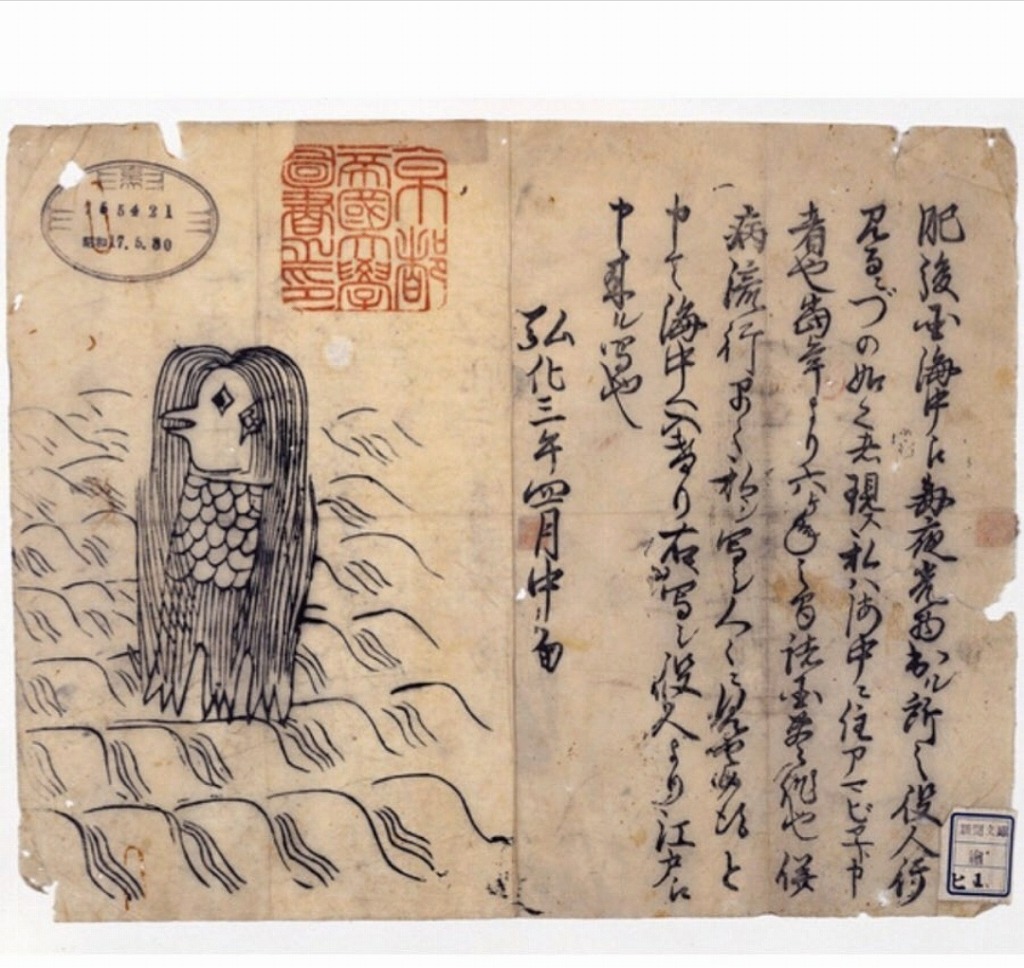 肥後国海中江毎夜光物出ル所之役人行
見るニづの如く者現ス私ハ海中ニ住アマビヱト申
者也當年より六ヶ年之間諸国豊作也併
病流行早々私シ写シ人々ニ見セ候得と
申て海中へ入けり右写シ役人より江戸江
申来ル写也
弘化三年四月中旬
京都
帝國大學
圖書之印
昭和17.5.30
新聞文庫
繪
ヒ 1